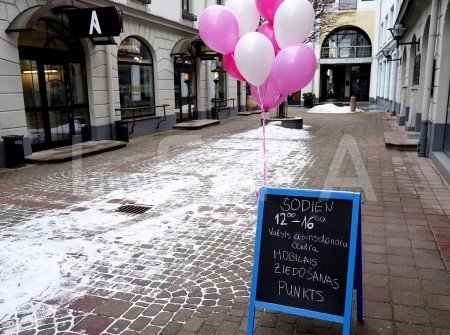 A
ŠODIEN
12⁰⁰-16⁰⁰
Valsts asinsdonoru
centra
MOBILAIS
ZIEDOŠANAS
PUNKTS